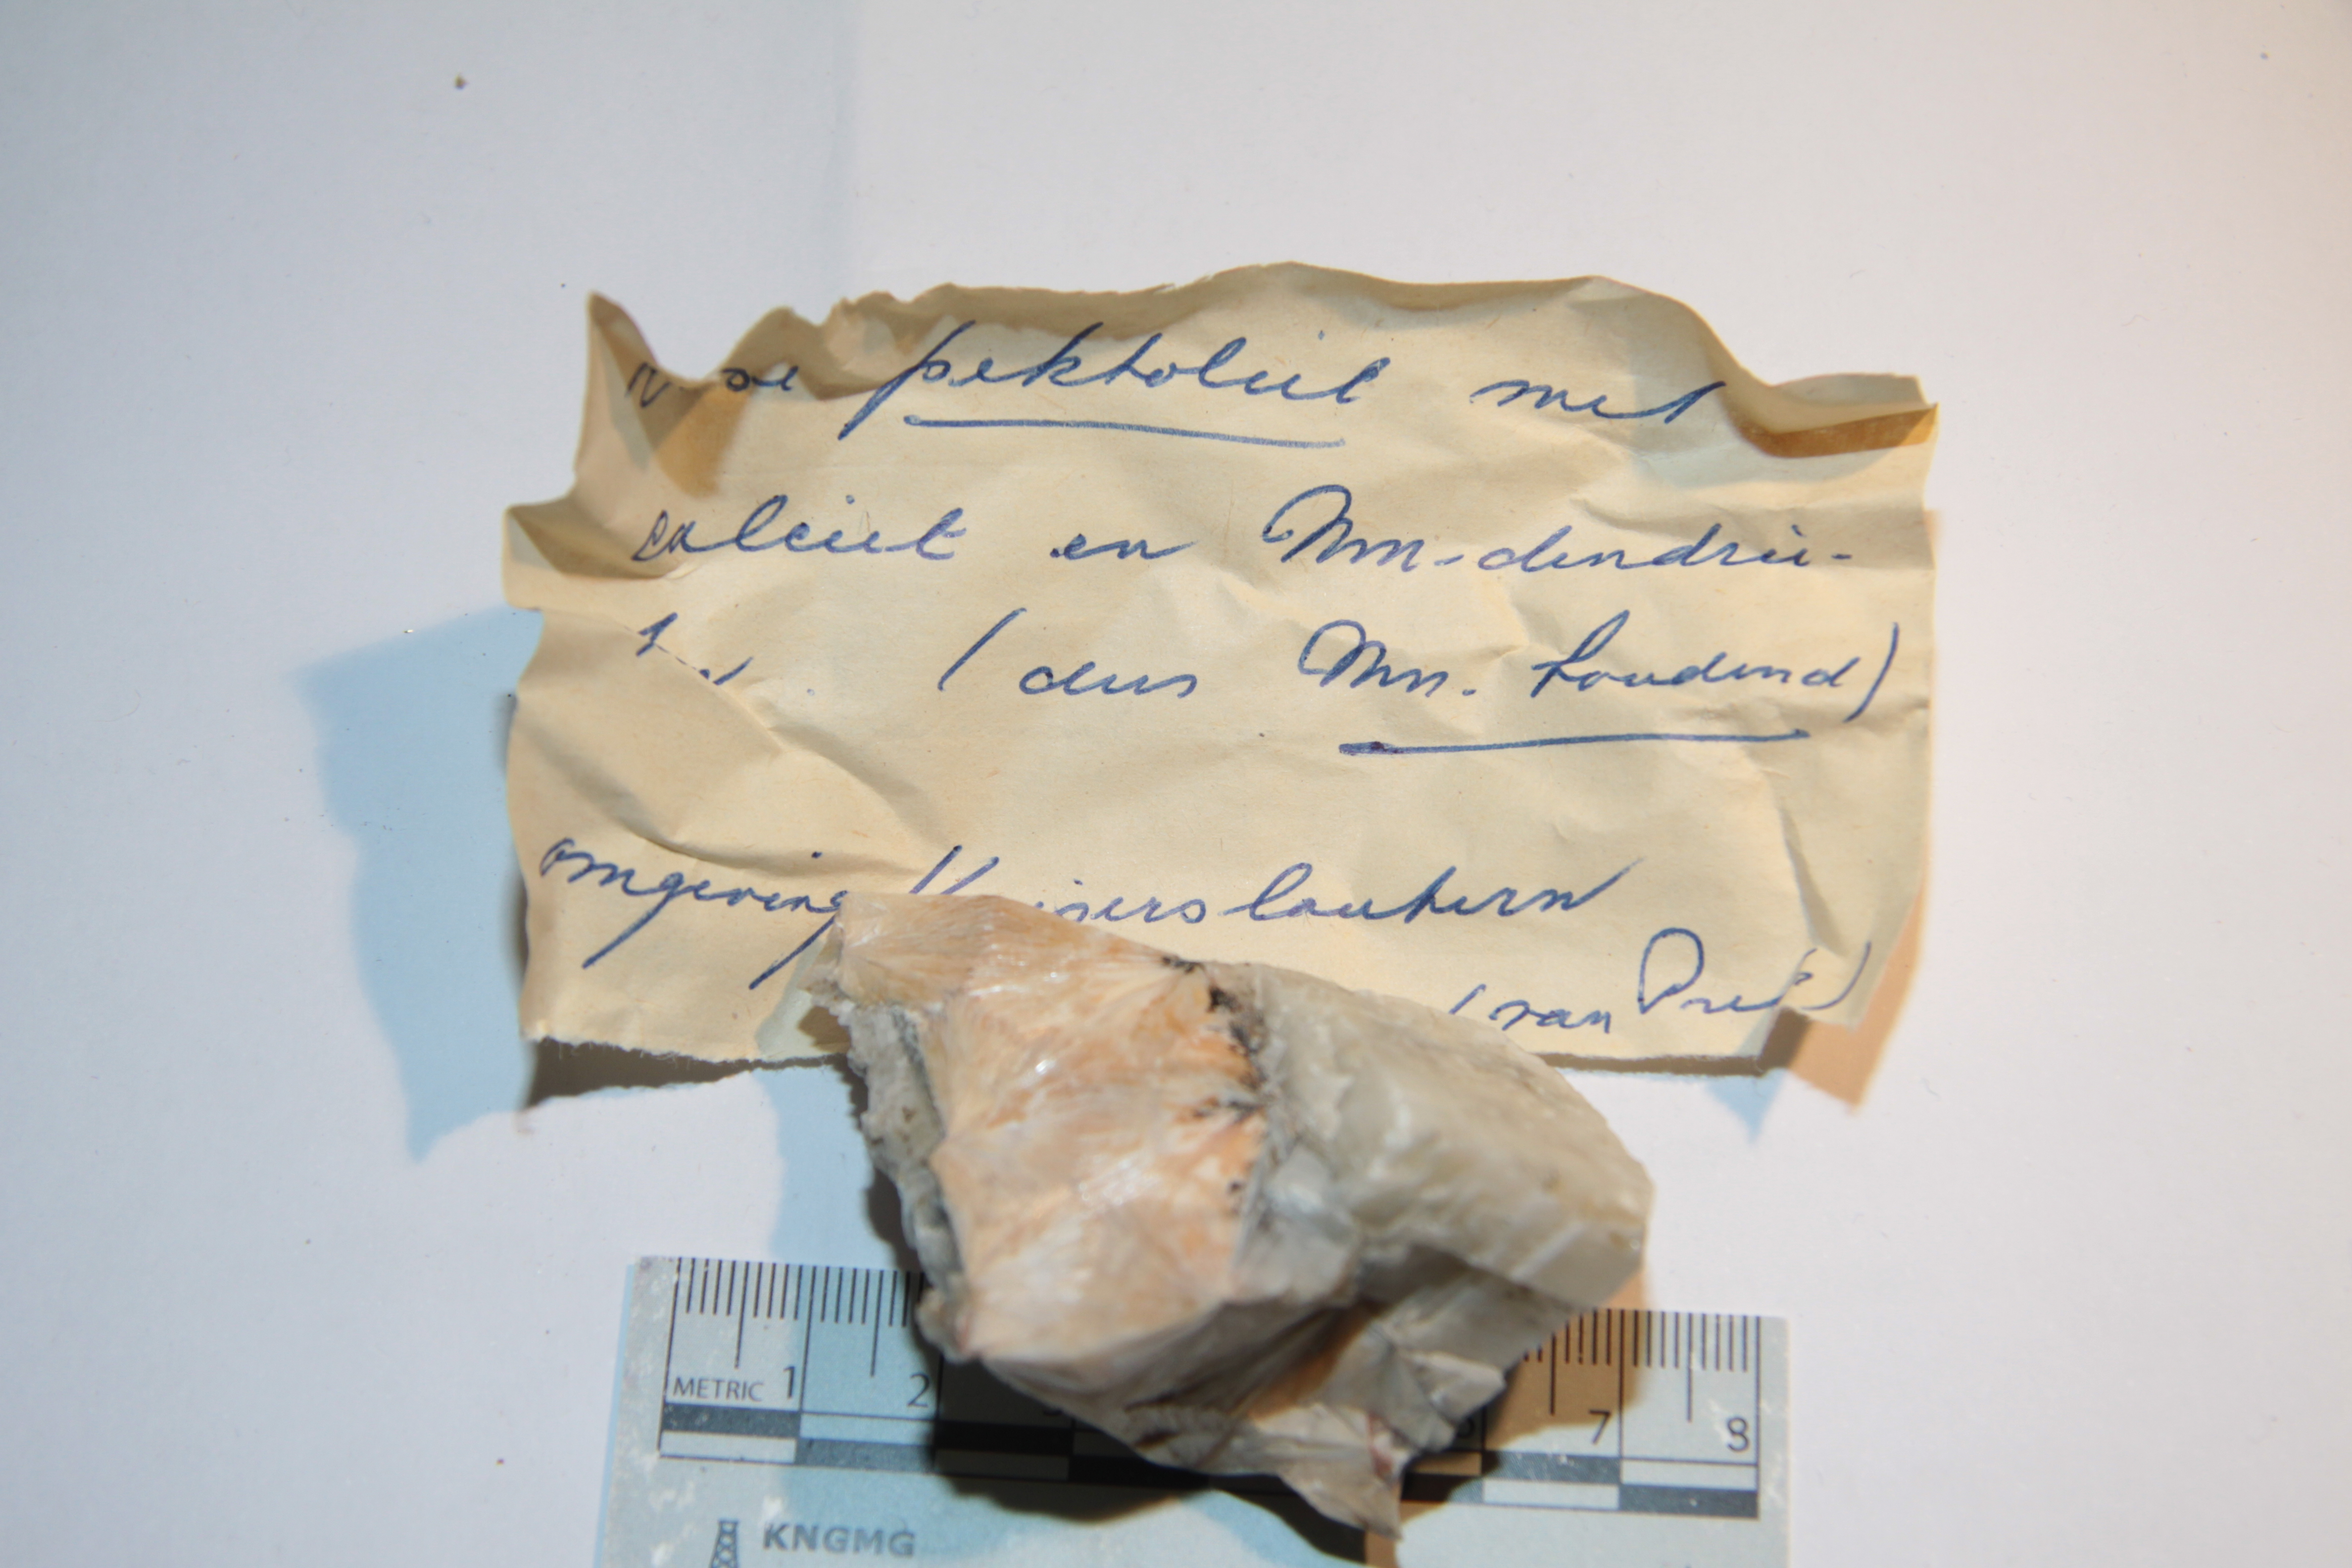 pektoliet met
calciet en Mn-dendrie-
(dus Mn. houdend)
omgeving Kaiserslautern
(van
METRIC 1 2 7 8
KNGMG